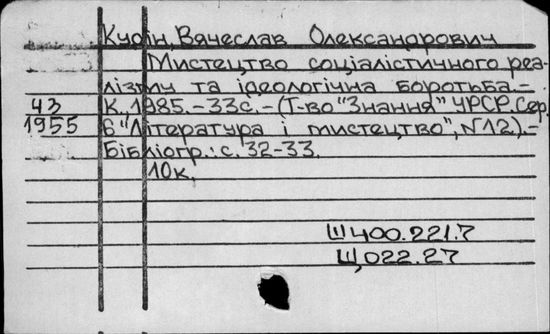 Кудін, Вячеслав Олександрович
Мистецтво соціалістичного реа-
лізму та ідеологічна боротьба.-
43 К., 1985.-33с.-(Т-во "Знання" УРСР. Сер.
1955 6 "Література і мистецтво", N12).-
Бібліогр.: с. 32-33.
10к.
Ш400.221.7
Щ022.27